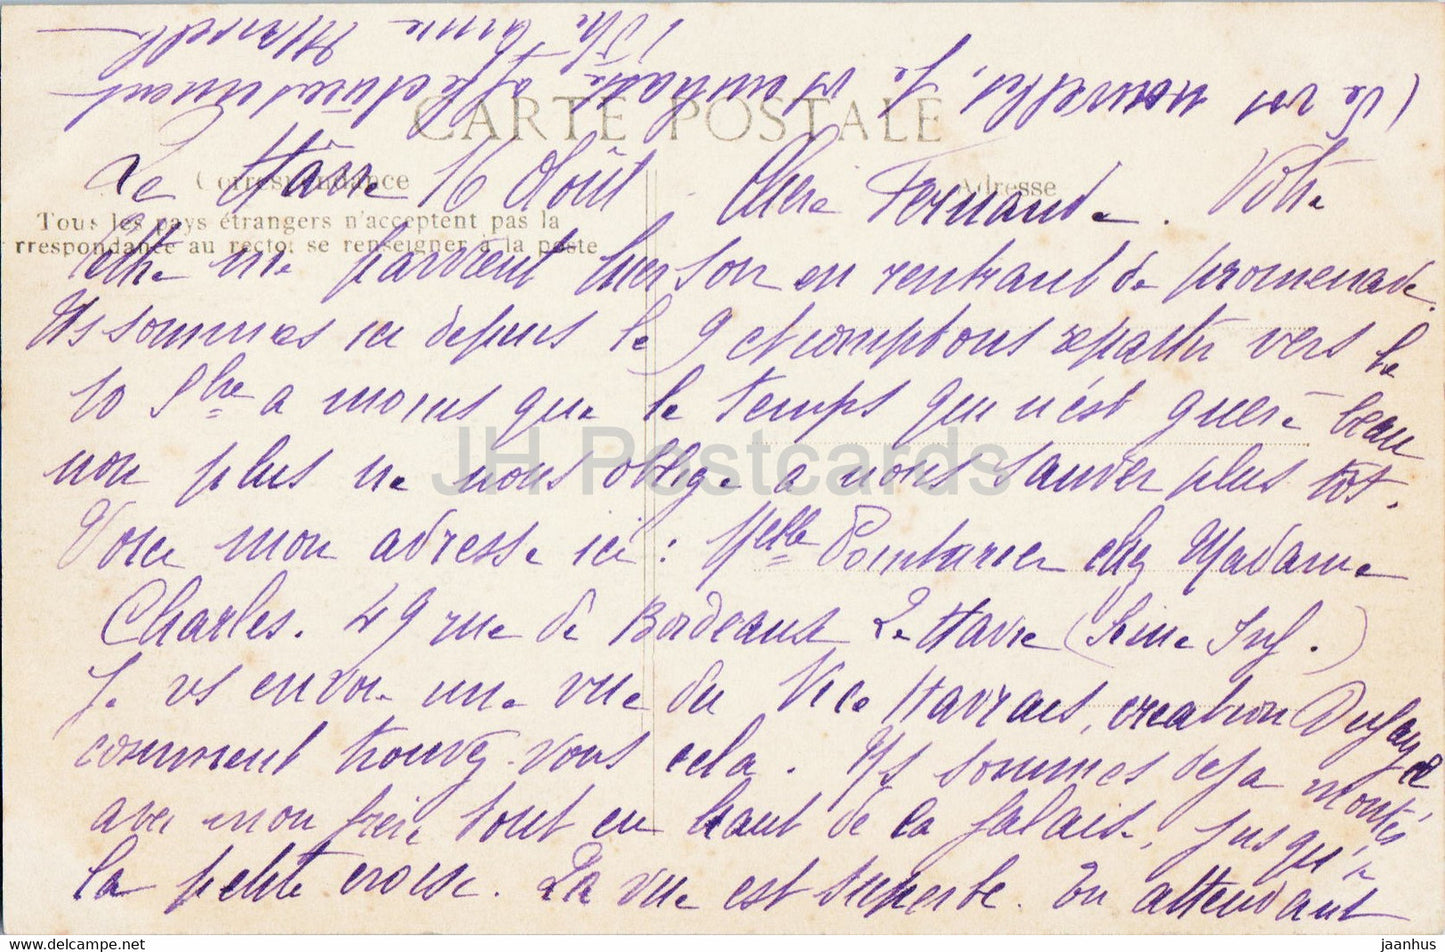 CARTE POSTALE
Correspondance
Adresse
Tous les pays étrangers n'acceptent pas la
rrespondance au recto: se renseigner à la poste
Le Hâvre 16 Août - Chère Fernande. Votre
lettre me parvient hier soir en rentrant de promenade.
Ns sommes ici depuis le 9 et comptons repartir vers le
10 Sbre a moins que le temps qui n'est guère beau
non plus ne nous oblige a nous sauver plus tôt.
Voici mon adresse ici : Melle Pointurier chez Madame
Charles. 49 rue de Bordeaux Le Havre (Seine Inf.)
Je vs envoie une vue du Nice Havrais, création Dufayel
comment trouvez-vous cela. Ns sommes deja montés
avec mon frère tout en haut de la falaise, jusqu'à
la petite croix. La vue est superbe. En attendant
(de vos nouvelles, je vs embrasse affectueusement
Vtre amie
JH Postcards
https://www.hippostcard.com
jaanhus